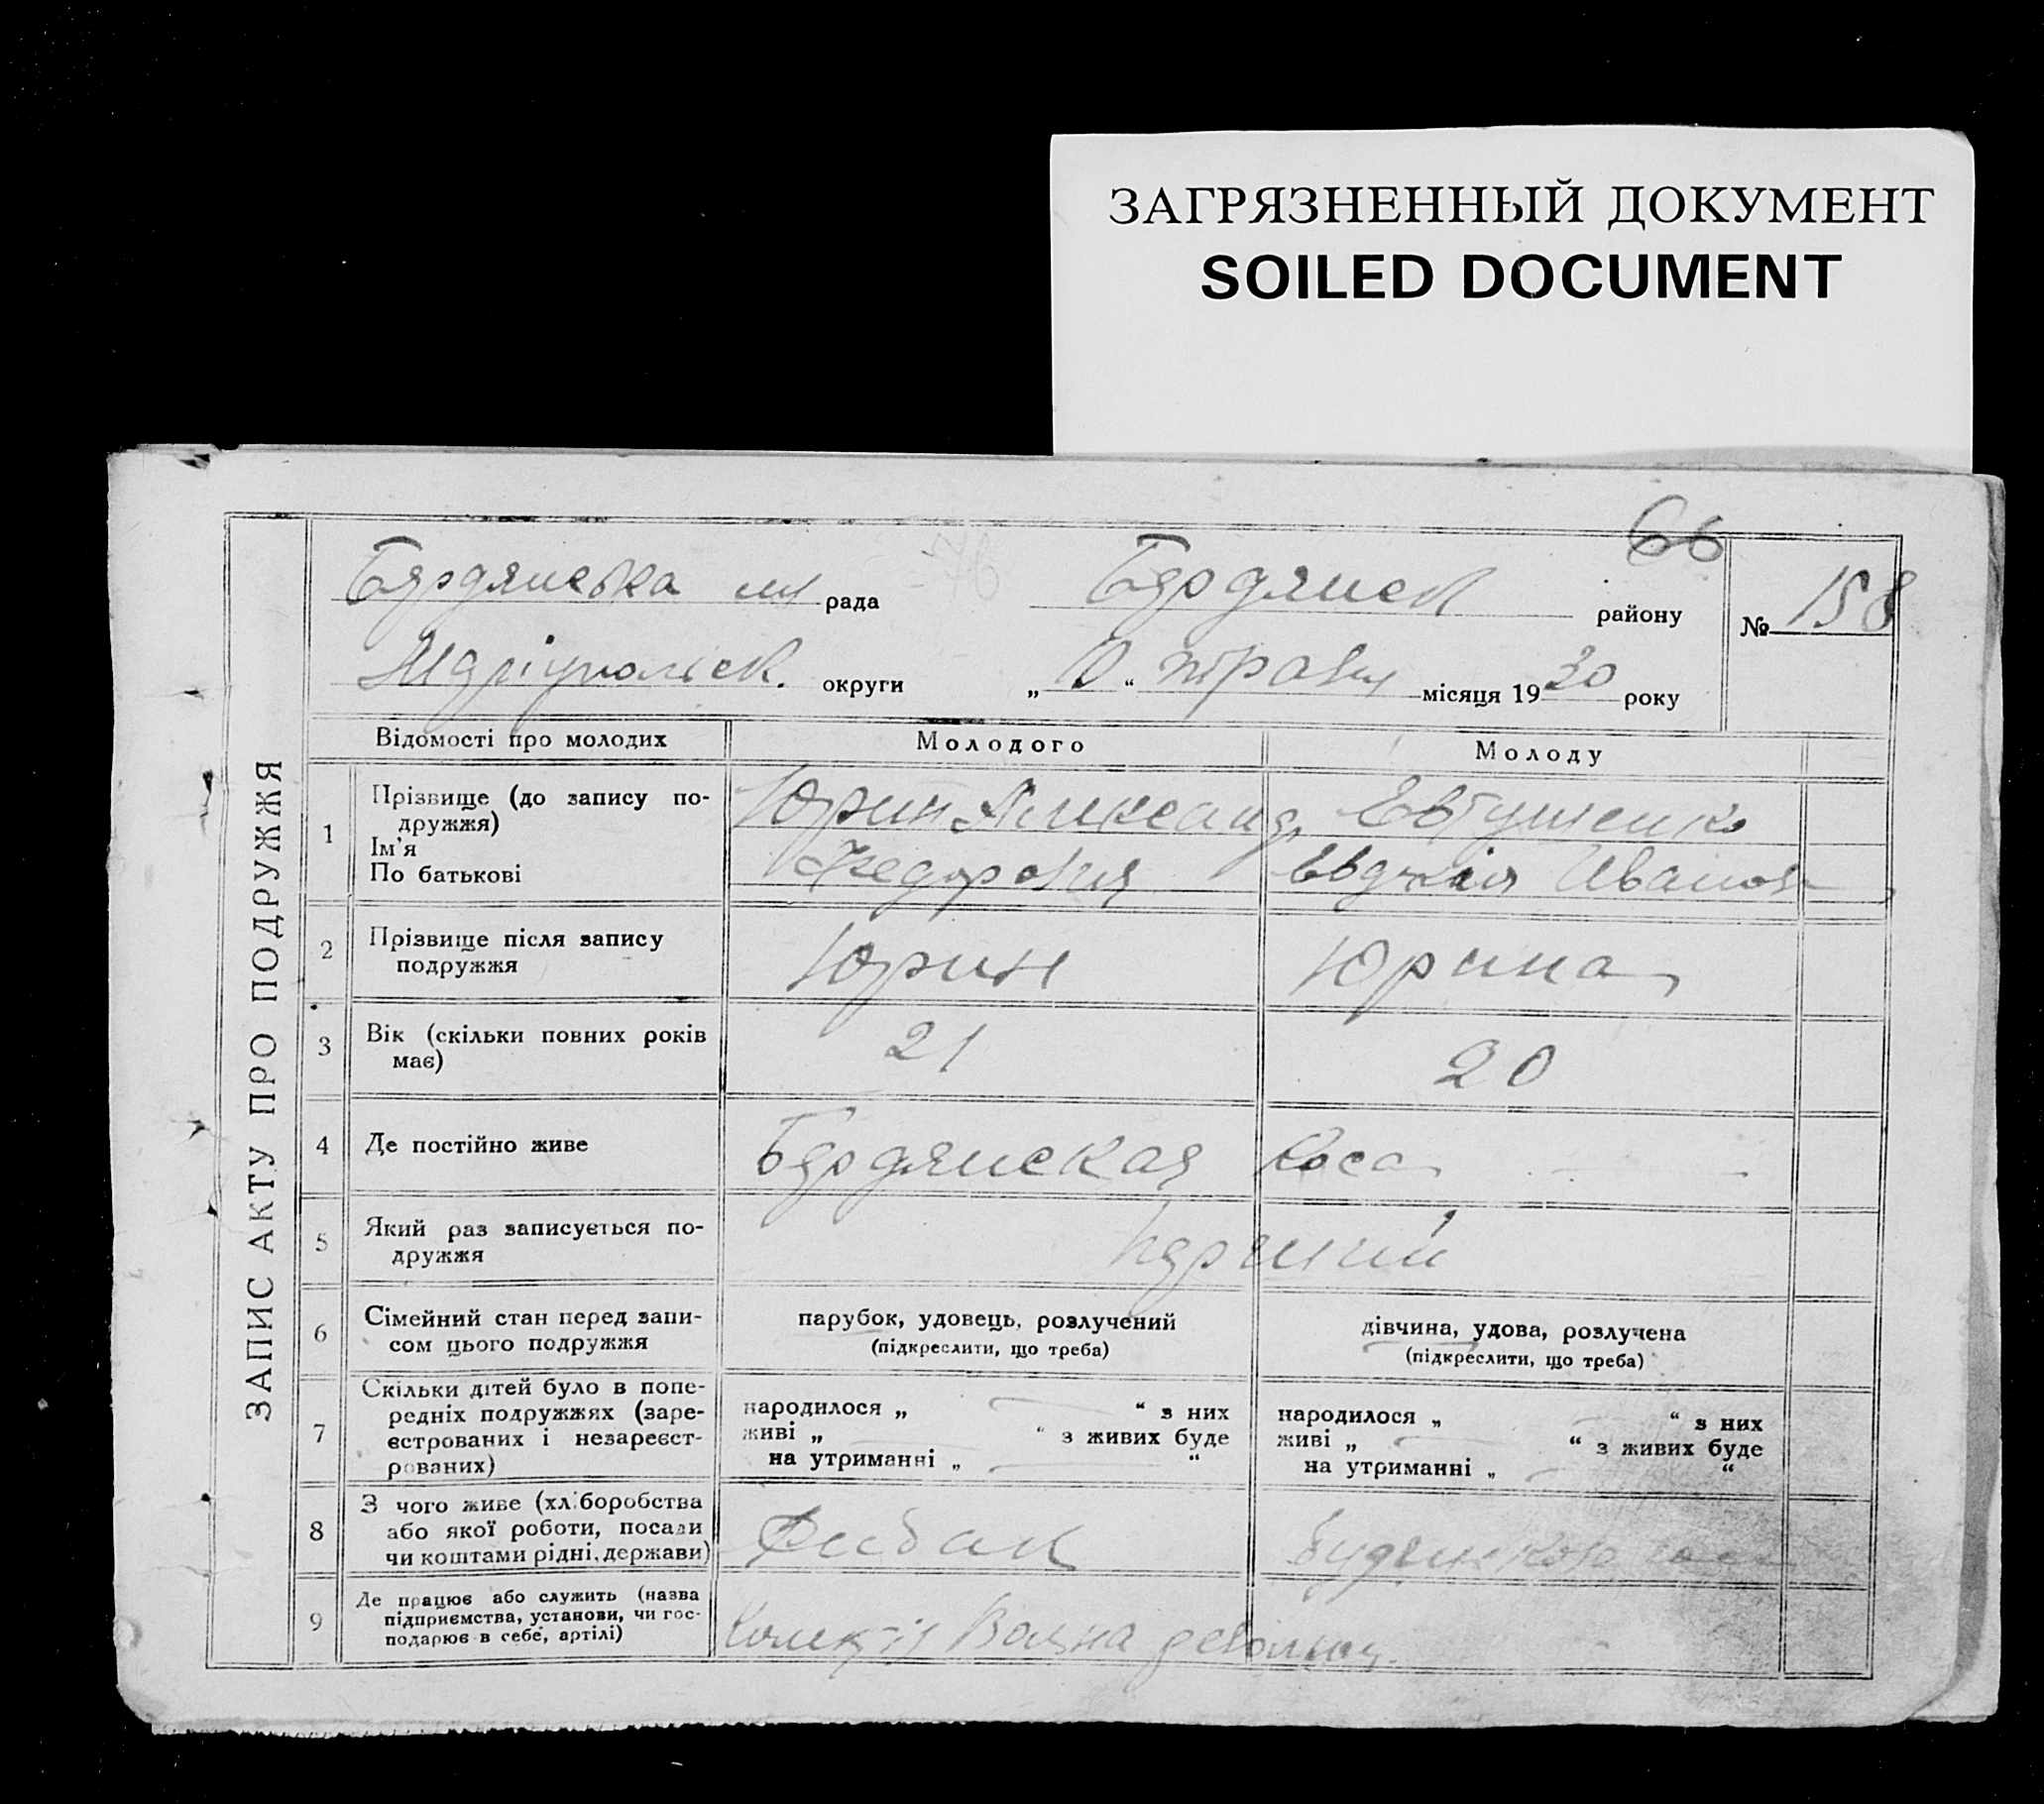 ЗАГРЯЗНЕННЫЙ ДОКУМЕНТ
SOILED DOCUMENT
66
Бердянська рада Бердянськ району № 158
Маріупольск. округи „10“ травня місяця 1930 року
ЗАПИС АКТУ ПРО ПОДРУЖЖЯ
Відомості про молодих Молодого Молоду
1 Прізвище (до запису по-
дружжя)
Ім'я
По батькові
Юрин Александ.
Федоровия
Евтушенко
Евдокія Иванов
2 Прізвище після запису
подружжя
Юрин Юрина
3 Вік (скільки повних років
має)
21 20
4 Де постійно живе Бердянская Коса
5 Який раз записується по-
дружжя
перший
6 Сімейний стан перед запи-
сом цього подружжя
парубок, удовець, розлучений
(підкреслити, що треба)
дівчина, удова, розлучена
(підкреслити, що треба)
7 Скільки дітей було в попе-
редніх подружжях (заре-
єстрованих і незареєст-
рованих)
народилося „ “ з них
живі „ “ з живих буде
на утриманні „ “
народилося „ “ з них
живі „ “ з живих буде
на утриманні „ “
8 З чого живе (хліборобства
або якої роботи, посади
чи коштами рідні, держави)
Рибак
9 Де працює або служить (назва
підприємства, установи, чи гос-
подарює в себе, артілі)